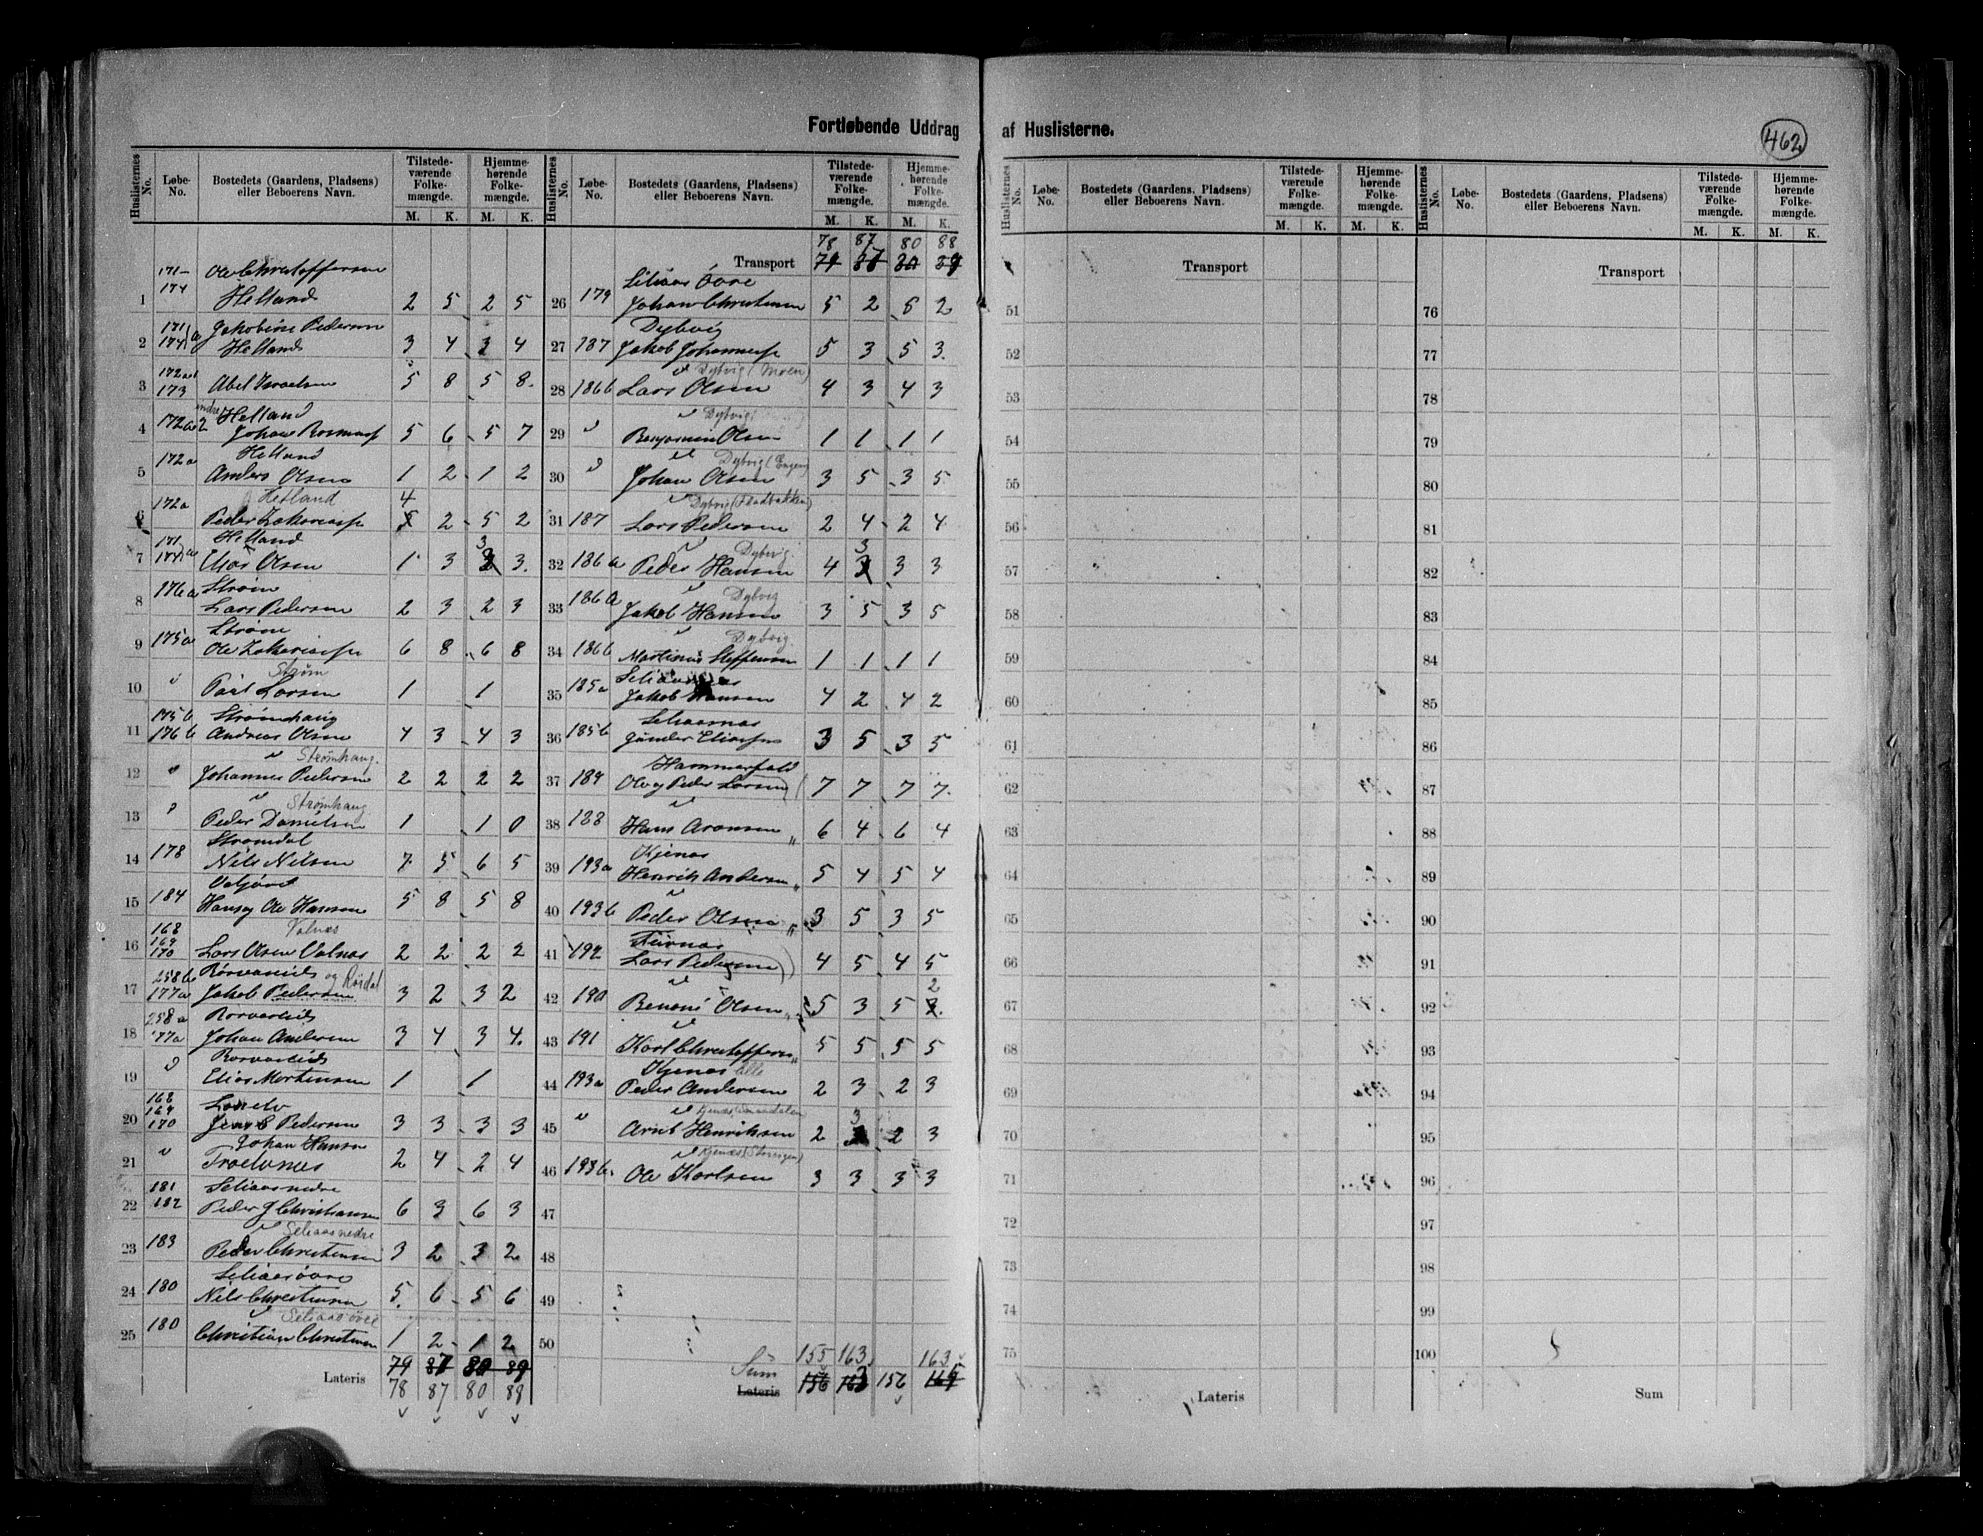 Fortløbende Uddrag af Huslisterne.
462
Huslisternes No. Løbe-No. Bostedets (Gaardens, Pladsens) eller Beboerens Navn. Tilstede-værende Folke-mængde. M. K. Hjemme-hørende Folke-mængde. M. K.
171- Ole Christoffersen
1 174 Helland 2 5 2 5
171 Jakobine Pedersen
2 174 a Helland 3 4 3 4
172a
3 173 Abel Israelsen 5 8 5 8.
Helland
4 172a 2 Johan 5 6 5 7
172a Helland
5 Anders Olsen 1 2 1 2
172a Helland 4
6 Peder Zakariasse 5 2 5 2
171 Helland 3
7 174 a Olsen 1 3 3 3.
176a Strøm
8 Lars Pedersen 2 3 2 3
175a Strøm
9 Ole Zakariasse 6 8 6 8
Strøm
10 " Larsen 1 1
175b Strømhaug
11 176b Andreas Olsen 4 3 4 3
" Strømhaug.
12 " Johannes Pedersen 2 2 2 2
" Strømhaug
13 " Peder Danielsen 1 1 0
Strømdal
14 178 Nils Nilsen 7 5 6 5
15 184 Hans og Ole Hansen 5 8 5 8
168 Valnæs
169
16 170 Lars Olsen Valnæs 2 2 2 2
258b Rørvareid og Røsdal
17 177a Jakob Pedersen 3 2 3 2
258a Rorvareid
18 177a Johan Andersen 3 4 3 4.
Rorvareid
19 " Elias Mortensen 1 1
168
169
20 170 Pedersen 3 3 3 3
Johan Hanse
21 " Troelvnæs 2 4 2 4
181 Seliaasnedre
22 182 Peder J Christiansen 6 3 6 3
" Seliaasnedre
23 183 Peder Christensen 3 2 3 2
Seliaasövre
24 180 Nils Christensen 5 6 5 6
" Seliaas övre
25 180 Christian Christensen 1 2 1 2
79 87 80 89
Lateris 78 87 80 88
Huslisternes No. Løbe-No. Bostedets (Gaardens, Pladsens) eller Beboerens Navn. Tilstede-værende Folke-mængde. M. K. Hjemme-hørende Folke-mængde. M. K.
78 87 80 88
Transport 79 87 80 89
Seliaas Övre
26 179 Johan Christensen 5 2 5 2
Dybvig
27 187 Jakob Johannesse 5 3 5 3.
" Dybvig (Moen)
28 186b Lars Olsen 4 3 4 3
" Dybvig
29 " Benjamin Olsen 1 1 1 1
" Dybvig (Engen)
30 " Johan Olsen 3 5 3 5
" Dybvig (Fladbakken)
31 187 Lars Pedersen 2 4 2 4
" Dybvig. 3
32 186a Peder Hansen 4 3 3
" Dybvig
33 186a Jakob Hansen 3 5 3 5
" Dybvig
34 186b Martinus Steffensen 1 1 1 1
Seliaasnæs
35 185a Jakob Hansen 4 2 4 2
Seliaasnæs
36 185b Eliasse 3 5 3 5
Hammerfald
37 189 Ole og Peder Larsen 7 7 7 7.
"
38 188 Hans Aronsen " 6 4 6 4
Kjenæs
39 193a Henrik Andersen " 5 4 5 4
"
40 193b Peder Olsen " 3 5 3 5
41 192 Lars Pedersen 4 5 4 5
" 2
42 190 Benoni Olsen " 5 3 5
"
43 191 Karl Christoffersen " 5 5 5 5
Kjenæs
44 193a Peder Andersen 2 3 2 3
" 3
45 " Arnt Henriksen 2 2 3
" Kjenæs (Storengen)
46 193b. Ole Karlsen 3 3 3 3
47
48
49
50
155 163 163
Sum
Lateris 156 163 156 164
Huslisternes No. Løbe-No. Bostedets (Gaardens, Pladsens) eller Beboerens Navn. Tilstede-værende Folke-mængde. M. K. Hjemme-hørende Folke-mængde. M. K.
Transport
51
52
53
54
55
56
57
58
59
60
61
62
63
64
65
66
67
68
69
70
71
72
73
74
75
Lateris
Huslisternes No. Løbe-No. Bostedets (Gaardens, Pladsens) eller Beboerens Navn. Tilstede-værende Folke-mængde. M. K. Hjemme-hørende Folke-mængde. M. K.
Transport
76
77
78
79
80
81
82
83
84
85
86
87
88
89
90
91
92
93
94
95
96
97
98
99
100
Sum